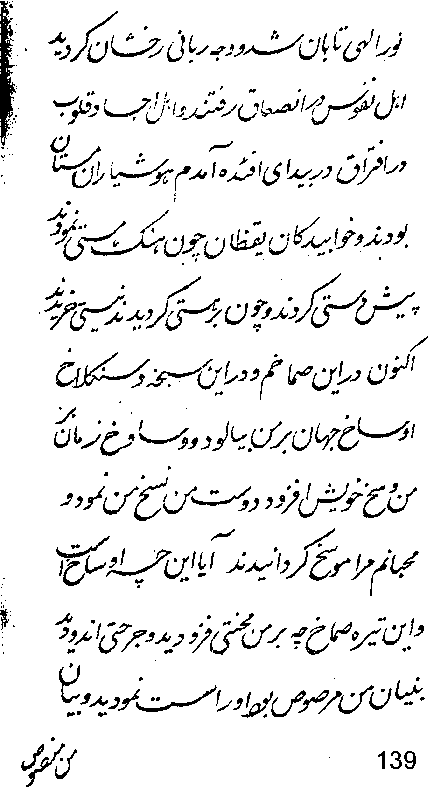 نور الهی تابان شد و وجه ربانی رخشان گردید
اهل نفوس در انصعاق رفتند و اهل اجساد و قلوب
در افتراق در بیدای افئده آمدم هوشیاران مستان
بودند و خوابیدگان یقظان چون هنگ مستی نمودند
پیش دستی کردند و چون بر هستی گردیدند نیستی خریدند
اکنون در این صماخم و در این سبخه و سنگلاخ
اوساخ جهان بر من بیالود و وساوخ زمان بر
من وسخ خویش افزود دوست من نسخ من نمود و
محبانم مرا موسخ گردانیدند آیا این چه اوساخ است
و این تیره صماخ چه بر من محنتی فزودید و جرحتی اندودید
بنیان من مرصوص بود او را سست نمودید و بیان
من منصوص
139